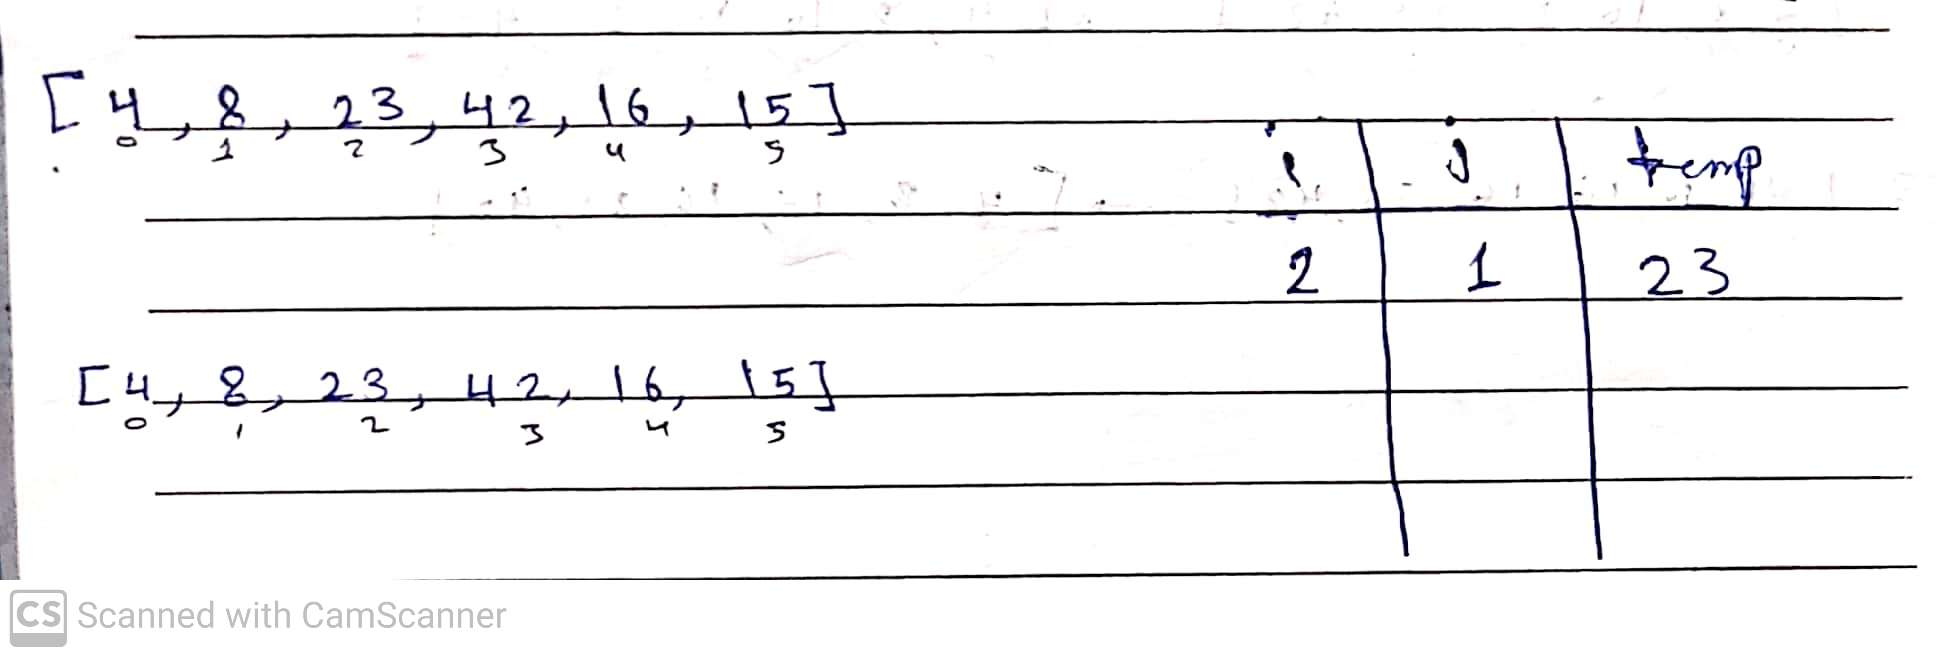 [4, 8, 23, 42, 16, 15]
0 1 2 3 4 5
i j temp
2 1 23
[4, 8, 23, 42, 16, 15]
0 1 2 3 4 5
CS Scanned with CamScanner